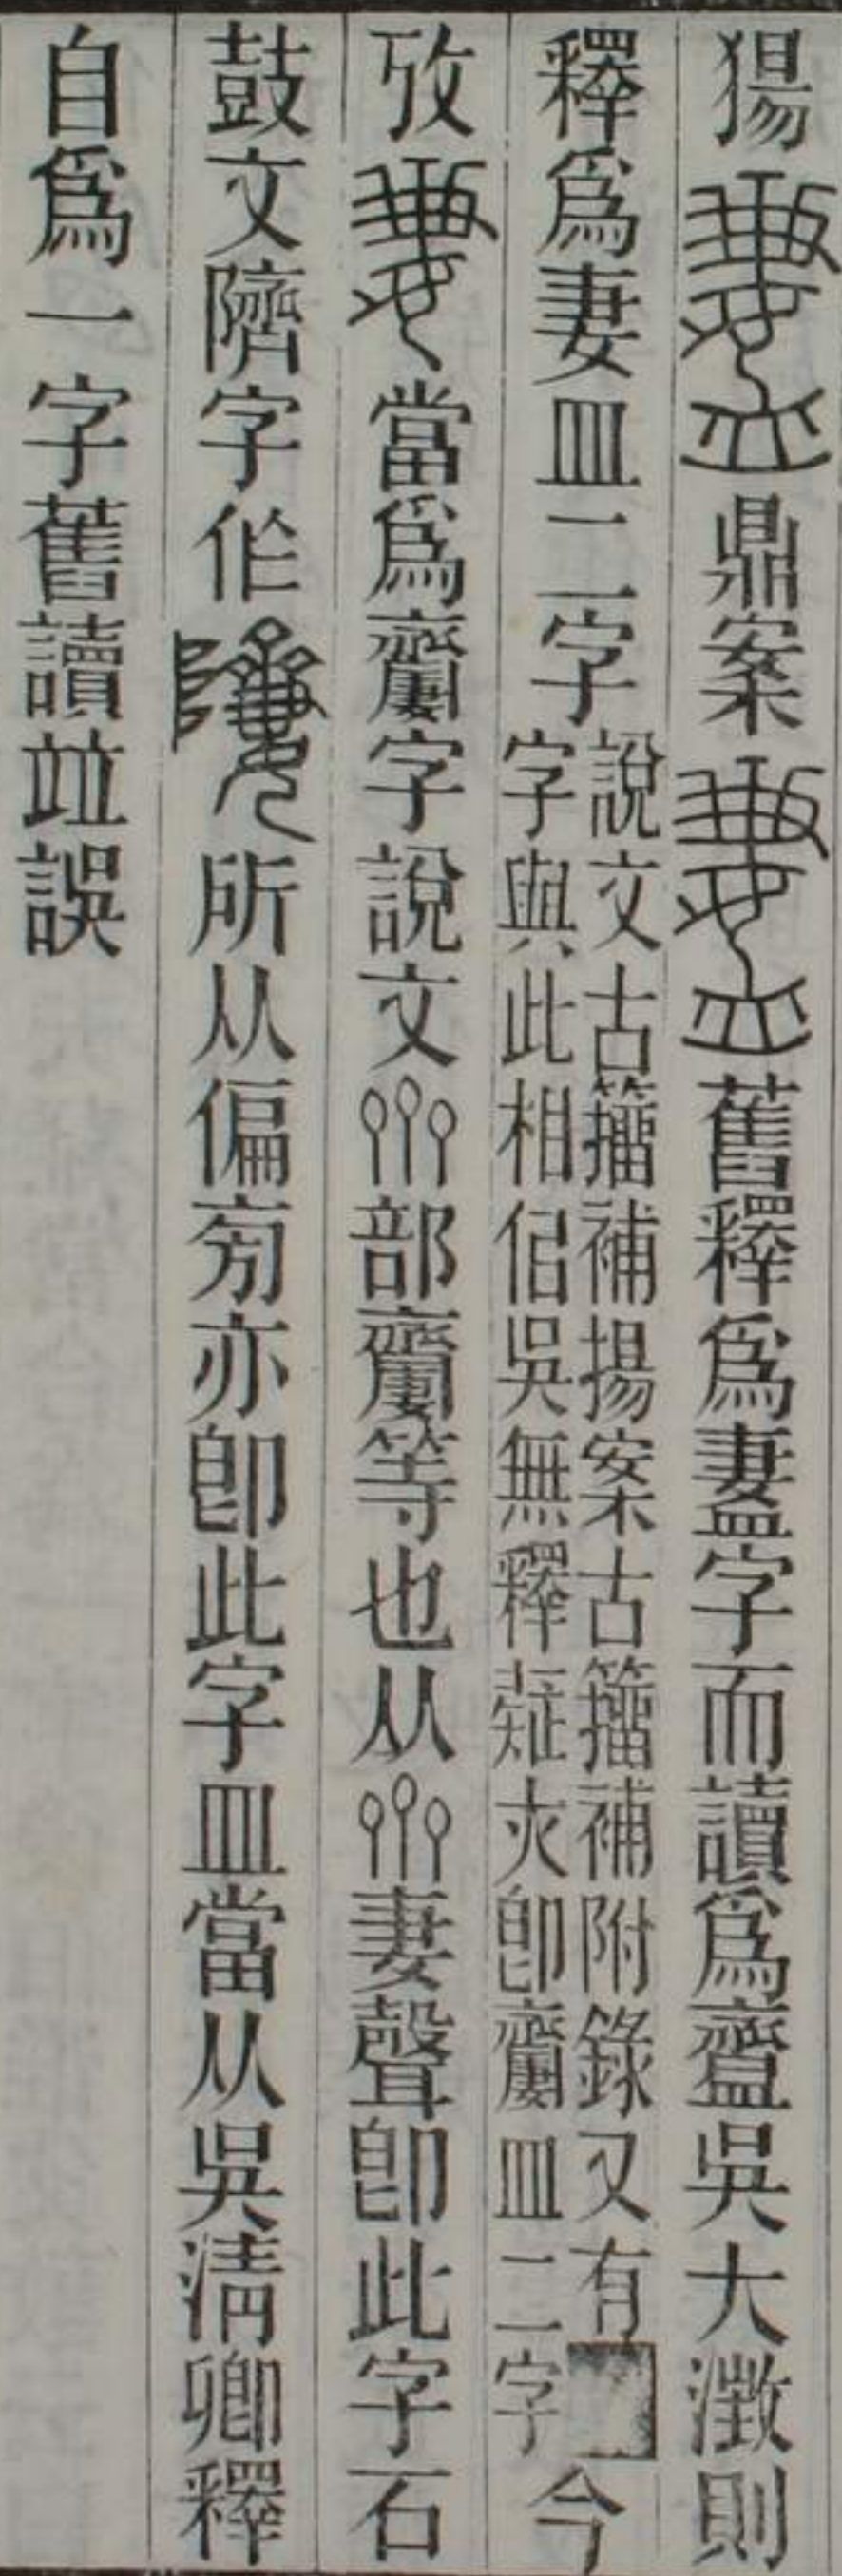 㺊鼎案舊釋爲𡠜字而讀爲齍吳大澂則
釋爲妻皿二字
說文古籒補揚案古籒補附錄又有
字與此相侣吳無釋㠯夾卽𪗍皿二字
今
攷當爲𪗍字說文部𪗍等也从妻聲卽此字石
鼓文隮字作所从偏㫄亦卽此字皿當从吳淸卿釋
自爲一字舊讀竝誤